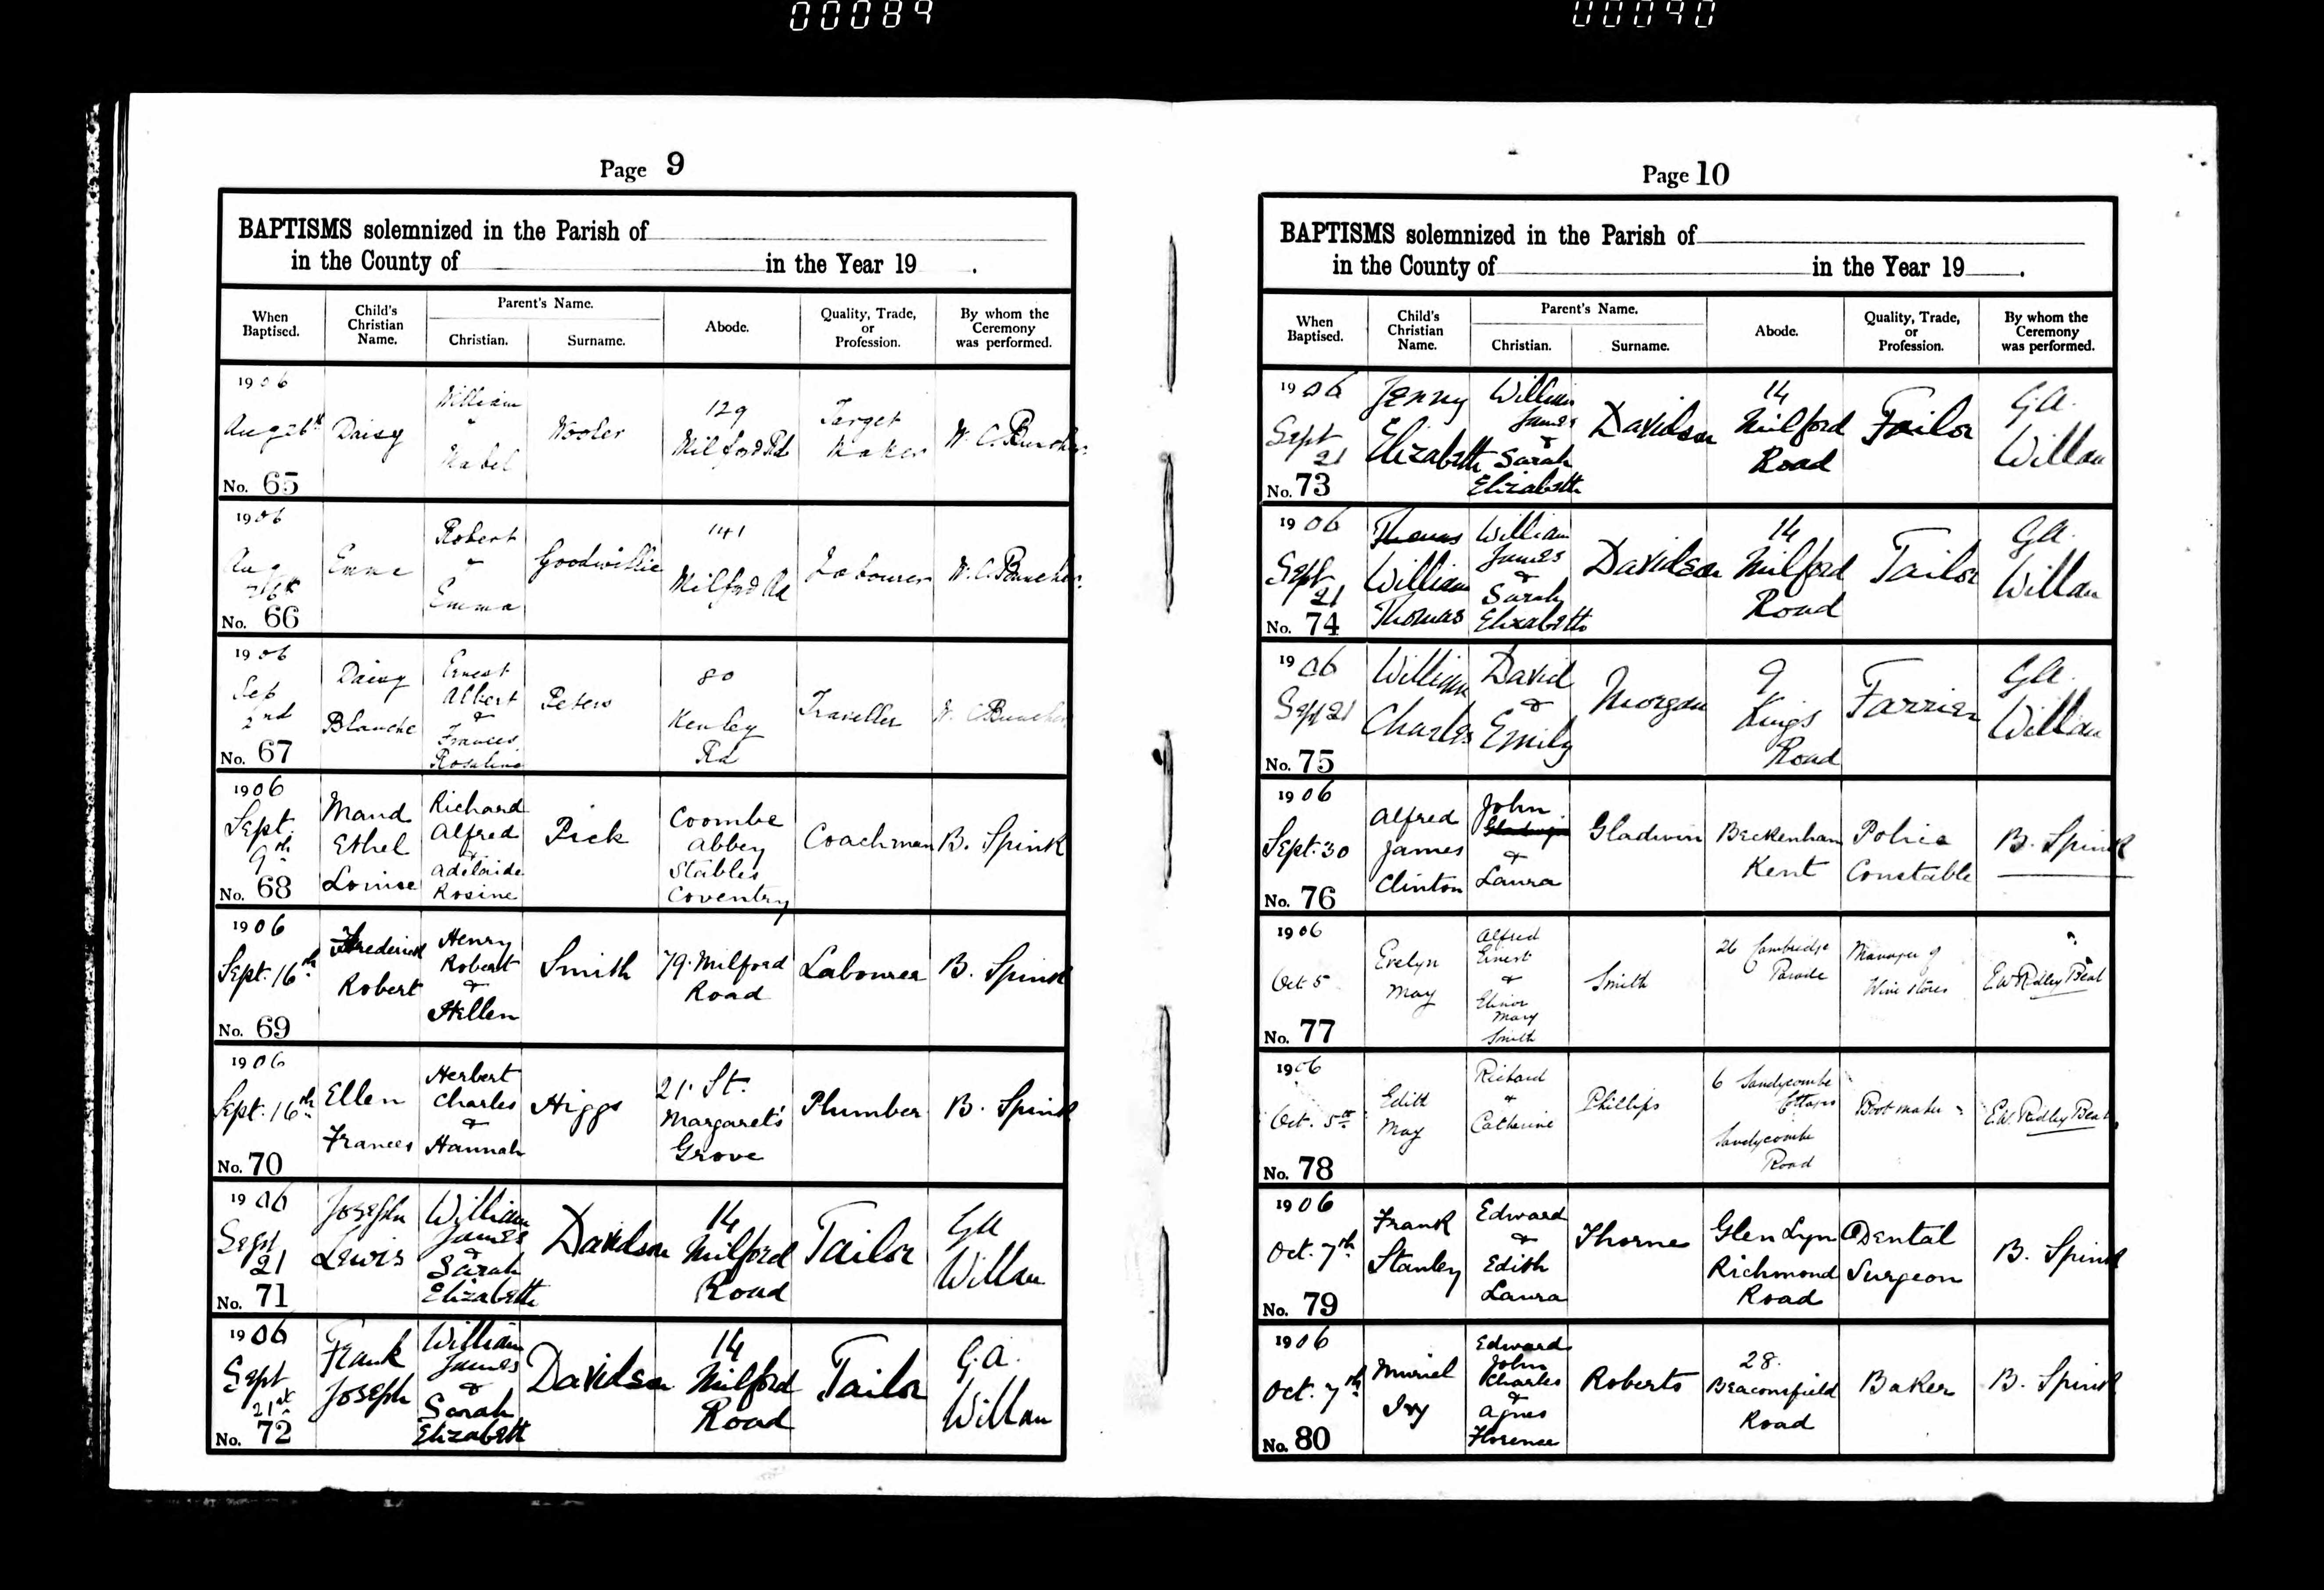 00089
00090
Page 9
BAPTISMS solemnized in the Parish of
in the County of in the Year 19 .
When Baptised.
Child's Christian Name.
Parent's Name.
Christian.
Surname.
Abode.
Quality, Trade, or Profession.
By whom the Ceremony was performed.
1906 Aug 26th No. 65
Daisy
William & Mabel
Wooler
129 Milford Rd
Target Maker
W. C. Buncher
1906 Aug 26th No. 66
Emma
Robert & Emma
Goodwillie
141 Milford Rd
Labourer
W. C. Buncher
1906 Sep 2nd No. 67
Daisy Blanche
Ernest Albert & Frances Rosalina
Peters
80 Kenley Rd
Traveller
W. C. Buncher
1906 Sept. 9th No. 68
Maud Ethel Louise
Richard Alfred & Adelaide Rosine
Pick
Coombe Abbey Stables Coventry
Coachman
B. Spink
1906 Sept. 16th No. 69
Frederick Robert
Henry Robert & Hellen
Smith
79. Milford Road
Labourer
B. Spink
1906 Sept. 16th No. 70
Ellen Frances
Herbert Charles & Hannah
Higgs
21. St. Margaret's Grove
Plumber
B. Spink
1906 Sept 21 No. 71
Joseph Lewis
William James & Sarah Elizabeth
Davidson
14 Milford Road
Tailor
G.A. Willan
1906 Sept 21st No. 72
Frank Joseph
William James & Sarah Elizabeth
Davidson
14 Milford Road
Tailor
G.A. Willan
Page 10
BAPTISMS solemnized in the Parish of
in the County of in the Year 19 .
When Baptised.
Child's Christian Name.
Parent's Name.
Christian.
Surname.
Abode.
Quality, Trade, or Profession.
By whom the Ceremony was performed.
1906 Sept 21 No. 73
Jenny Elizabeth
William James & Sarah Elizabeth
Davidson
14 Milford Road
Tailor
G.A. Willan
1906 Sept 21 No. 74
Thomas William Thomas
William James & Sarah Elizabeth
Davidson
14 Milford Road
Tailor
G.A. Willan
1906 Sept 21 No. 75
William Charles
David & Emily
Morgan
9 Kings Road
Farrier
G.A. Willan
1906 Sept. 30 No. 76
Alfred James Clinton
John Gladwin & Laura
Gladwin
Beckenham Kent
Police Constable
B. Spink
1906 Oct 5 No. 77
Evelyn May
Alfred Ernest & Elinor Mary Smith
Smith
26 Cambridge Parade
Manager of Wine Stores
E.W. Ridley Beal
1906 Oct. 5th No. 78
Edith May
Richard & Catherine
Phillips
6 Sandycombe Cottages Sandycombe Road
Bootmaker
E.W. Ridley Beal
1906 Oct. 7th No. 79
Frank Stanley
Edward & Edith Laura
Thorne
Glen Lyn Richmond Road
Dental Surgeon
B. Spink
1906 Oct. 7th No. 80
Muriel Ivy
Edward John Charles & Agnes Florence
Roberts
28. Beaconsfield Road
Baker
B. Spink